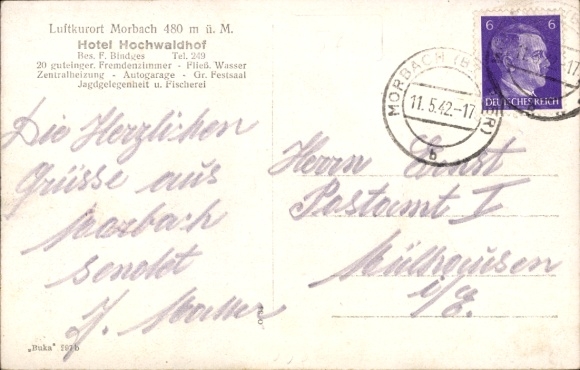 Luftkurort Morbach 480 m ü. M.
Hotel Hochwaldhof
Bes. F. Bindges Tel. 249
20 guteinger. Fremdenzimmer - Fließ. Wasser
Zentralheizung - Autogarage - Gr. Festsaal
Jagdgelegenheit u. Fischerei
Die Herzlichen
Grüsse aus
Morbach
sendet
J.
Herrn Ernst
Postamt I
Mülhausen
i/E.
6 6
DEUTSCHES REICH
MORBACH
11.5.42.-17
b
„Buka" 597 b